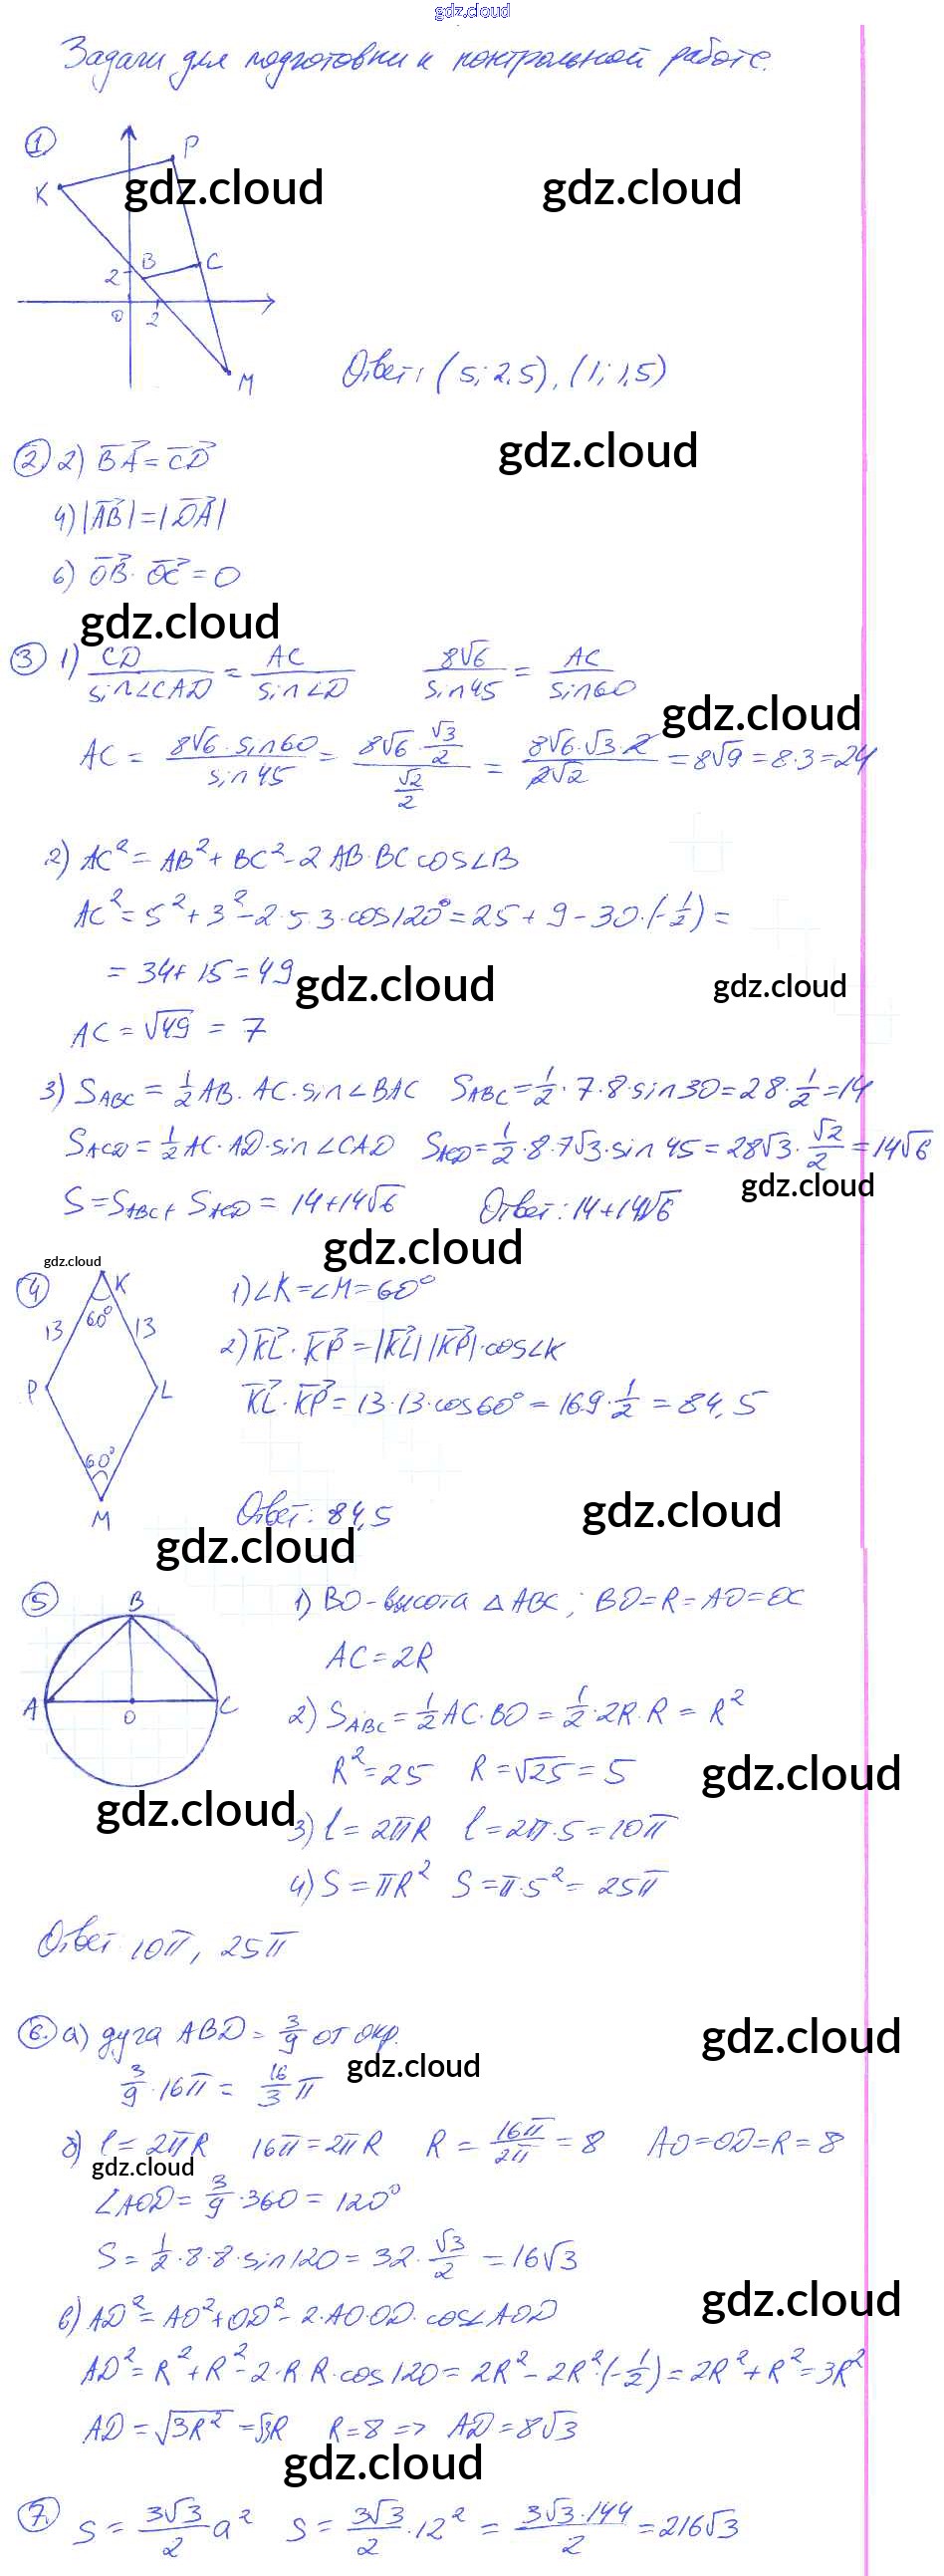 gdz.cloud
Задачи для подготовки к контрольной работе.
1
P
K
gdz.cloud gdz.cloud
B C
2
0 2
M
Ответ: (5; 2,5), (1; 1,5)
2 2) BA = CD
gdz.cloud
4) |AB| = |DA|
6) OB · OC = 0
gdz.cloud
3 1) CD/sin∠CAD = AC/sin∠D 8√6/sin45 = AC/sin60
gdz.cloud
AC = 8√6·sin60/sin45 = 8√6·√3/2 / √2/2 = 8√6·√3·2/2√2 = 8√9 = 8·3 = 24
2) AC² = AB² + BC² - 2AB·BC cos∠B
AC² = 5² + 3² - 2·5·3·cos120° = 25 + 9 - 30·(-1/2) =
= 34 + 15 = 49
gdz.cloud gdz.cloud
AC = √49 = 7
3) S_ABC = 1/2 AB·AC·sin∠BAC S_ABC = 1/2·7·8·sin30 = 28·1/2 = 14
S_ACD = 1/2 AC·AD·sin∠CAD S_ACD = 1/2·8·7√3·sin45 = 28√3·√2/2 = 14√6
gdz.cloud
S = S_ABC + S_ACD = 14+14√6 Ответ: 14+14√6
gdz.cloud
gdz.cloud
4 K 1) ∠K = ∠M = 60°
60°
13 13 2) KL · KP = |KL| |KP|·cos∠K
P L KL · KP = 13·13·cos60° = 169·1/2 = 84,5
60°
M Ответ: 84,5
gdz.cloud
gdz.cloud
5 B 1) BO - высота △ABC; BO = R = AO = OC
AC = 2R
A O C 2) S_ABC = 1/2 AC·BO = 1/2·2R·R = R²
R² = 25 R = √25 = 5
gdz.cloud
gdz.cloud
3) l = 2πR l = 2π·5 = 10π
4) S = πR² S = π·5² = 25π
Ответ 10π, 25π
6. а) дуга ABD = 3/9 от окр.
gdz.cloud
gdz.cloud
3/9·16π = 16/3 π
б) l = 2πR 16π = 2πR R = 16π/2π = 8 AO = OD = R = 8
gdz.cloud
∠AOD = 3/9·360 = 120°
S = 1/2·8·8·sin120 = 32·√3/2 = 16√3
gdz.cloud
в) AD² = AO² + OD² - 2·AO·OD·cos∠AOD
AD² = R² + R² - 2·R R·cos120 = 2R² - 2R²·(-1/2) = 2R² + R² = 3R²
AD = √3R² = √3R R = 8 => AD = 8√3
gdz.cloud
7. S = 3√3/2 a² S = 3√3/2·12² = 3√3·144/2 = 216√3